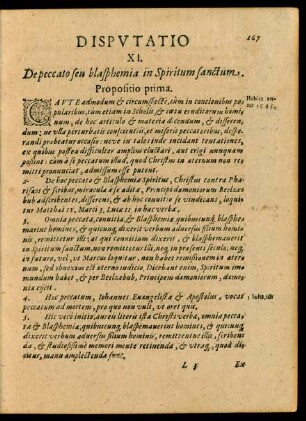 DISPVTATIO
167
XI.
De peccato seu blasphemia in Spiritum sanctum.
Propositio prima.
CAVTE admodum & circumspectè, tùm in concionibus po-
pularibus, tùm etiam in Scholis, & cœtu eruditorum homi-
num, de hoc articulo & materia dicendum, & differen-
dum; ne vlla perturbatis conscientijs, et miseris peccatoribus, despe-
randi præbeatur accasio: neue in tales inde incidant tentationes,
ex quibus postea difficulter amplius eluctari, aut erigi unquam
possint: cùm à se peccatum illud, quod Christus in æternum non re-
mitti pronunciat, admissum esse putent.
2. De hoc peccato & Blasphemia Spiritus, Christus contra Pha-
risæos & scribas, miracula à se ædita, Principi dæmoniorum Beelze-
bub adscribentes, differens, & ab hoc conuitio se vindicans, loqui-
tur Matthæi 12, Marci 3, Lucæ 11. in hæc verba.
3. Omnia peccata, conuitia, & Blasphemiæ quibuscunq; blasphe-
mauerint homines, & quicunq; dixerit verbum aduersus filium homi-
nis, remittetur illi; at qui conuitium dixerit, & blasphemauerit
in Spiritum sanctum, non remittetur illi, neq; in præsenti seculo, neq;
in futuro, vel, vt Marcus loquitur, non habet remissionem in æter-
num, sed obnoxius est æterno iudicio, Dicebant enim, Spiritum im-
mundum habet, & per Beelzebub, Principem dæmoniorum, dæmo-
nia eijcit.
4. Hoc peccatum, Iohannes Euangelista & Apostolus, vocat
peccatum ad mortem, pro quo non vult, vt oret quis.
5. His verò initio, aurea literis ista Christi verba, omnia pecca-
ta & Blasphemiæ, quibuscunq; blasphemauerint homines, & quicunq;
dixerit verbum aduersus filium hominis, remittentur illis, scriben-
da, & studiosissimè memori mente retinenda, & vtraq;, quod di-
citur, manu amplectenda sunt,
L
Ex